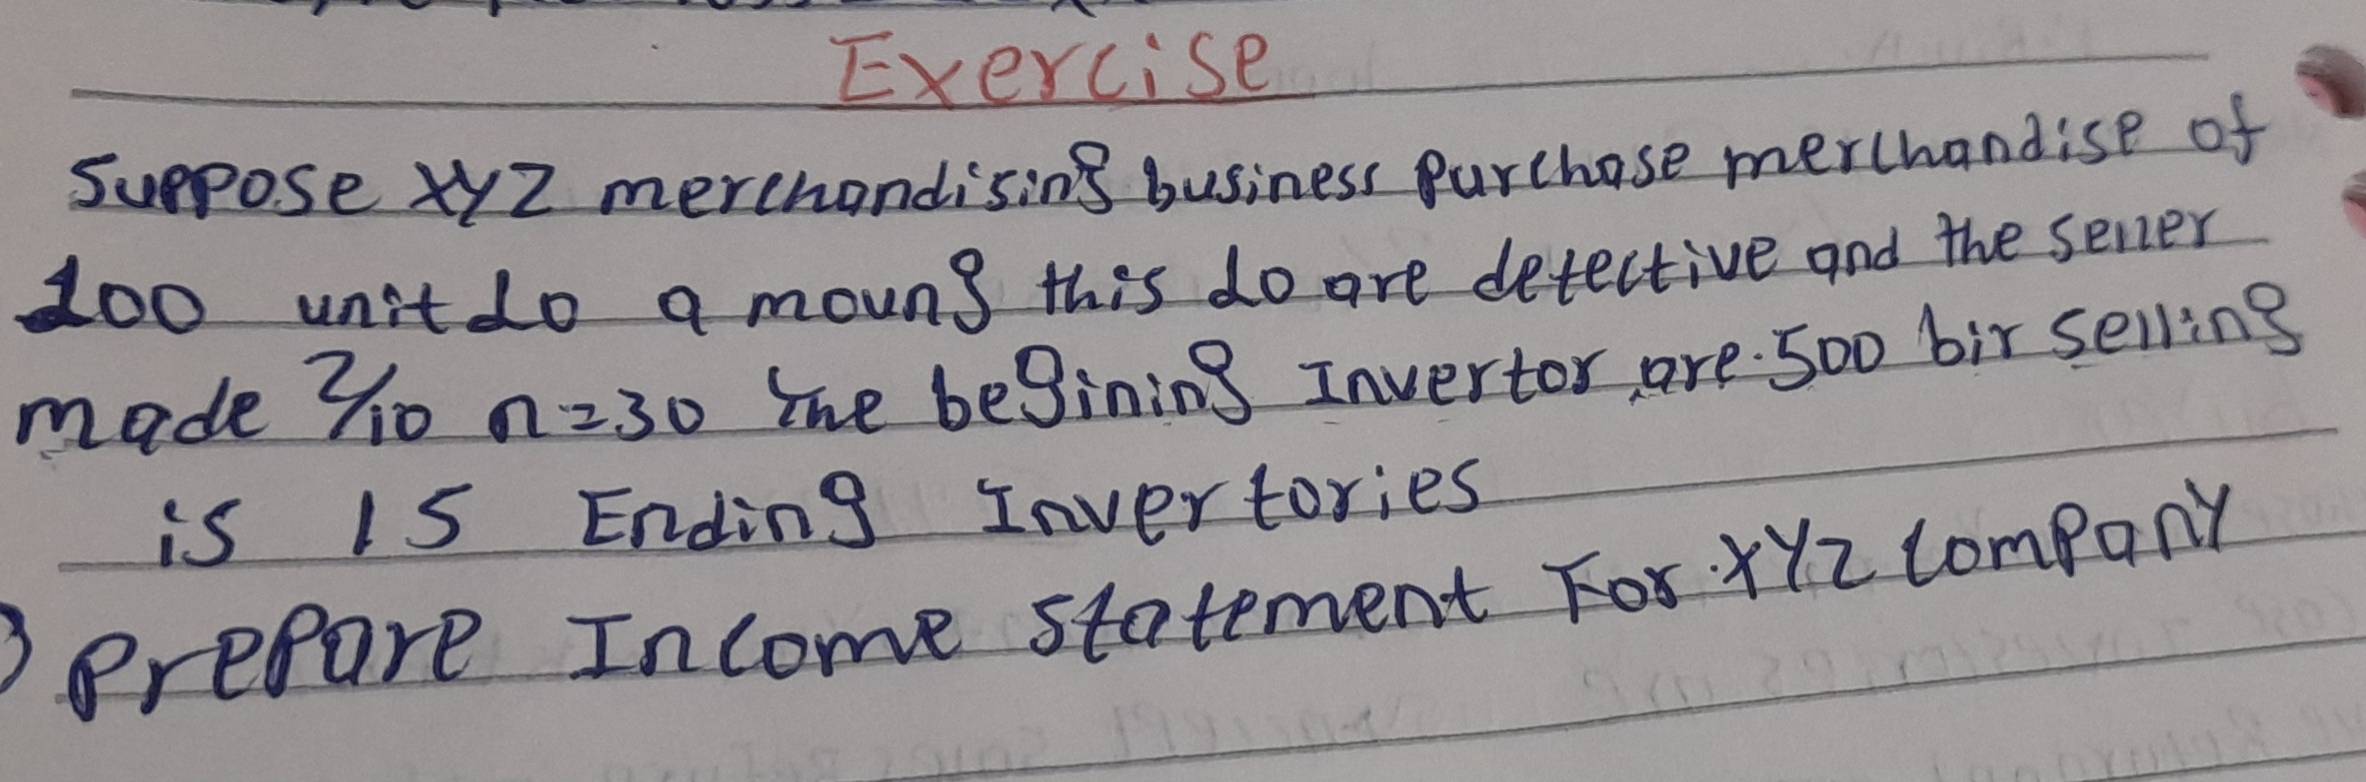 Exercise
Suppose XYZ merchandising business purchase merchandise of
100 unit 10 a moung this 10 are detective and the seller
made 2/10 n=30 the begining Invertor are 500 bir selling
is 15 Ending Invertories
Prepare Income statement For XYZ company